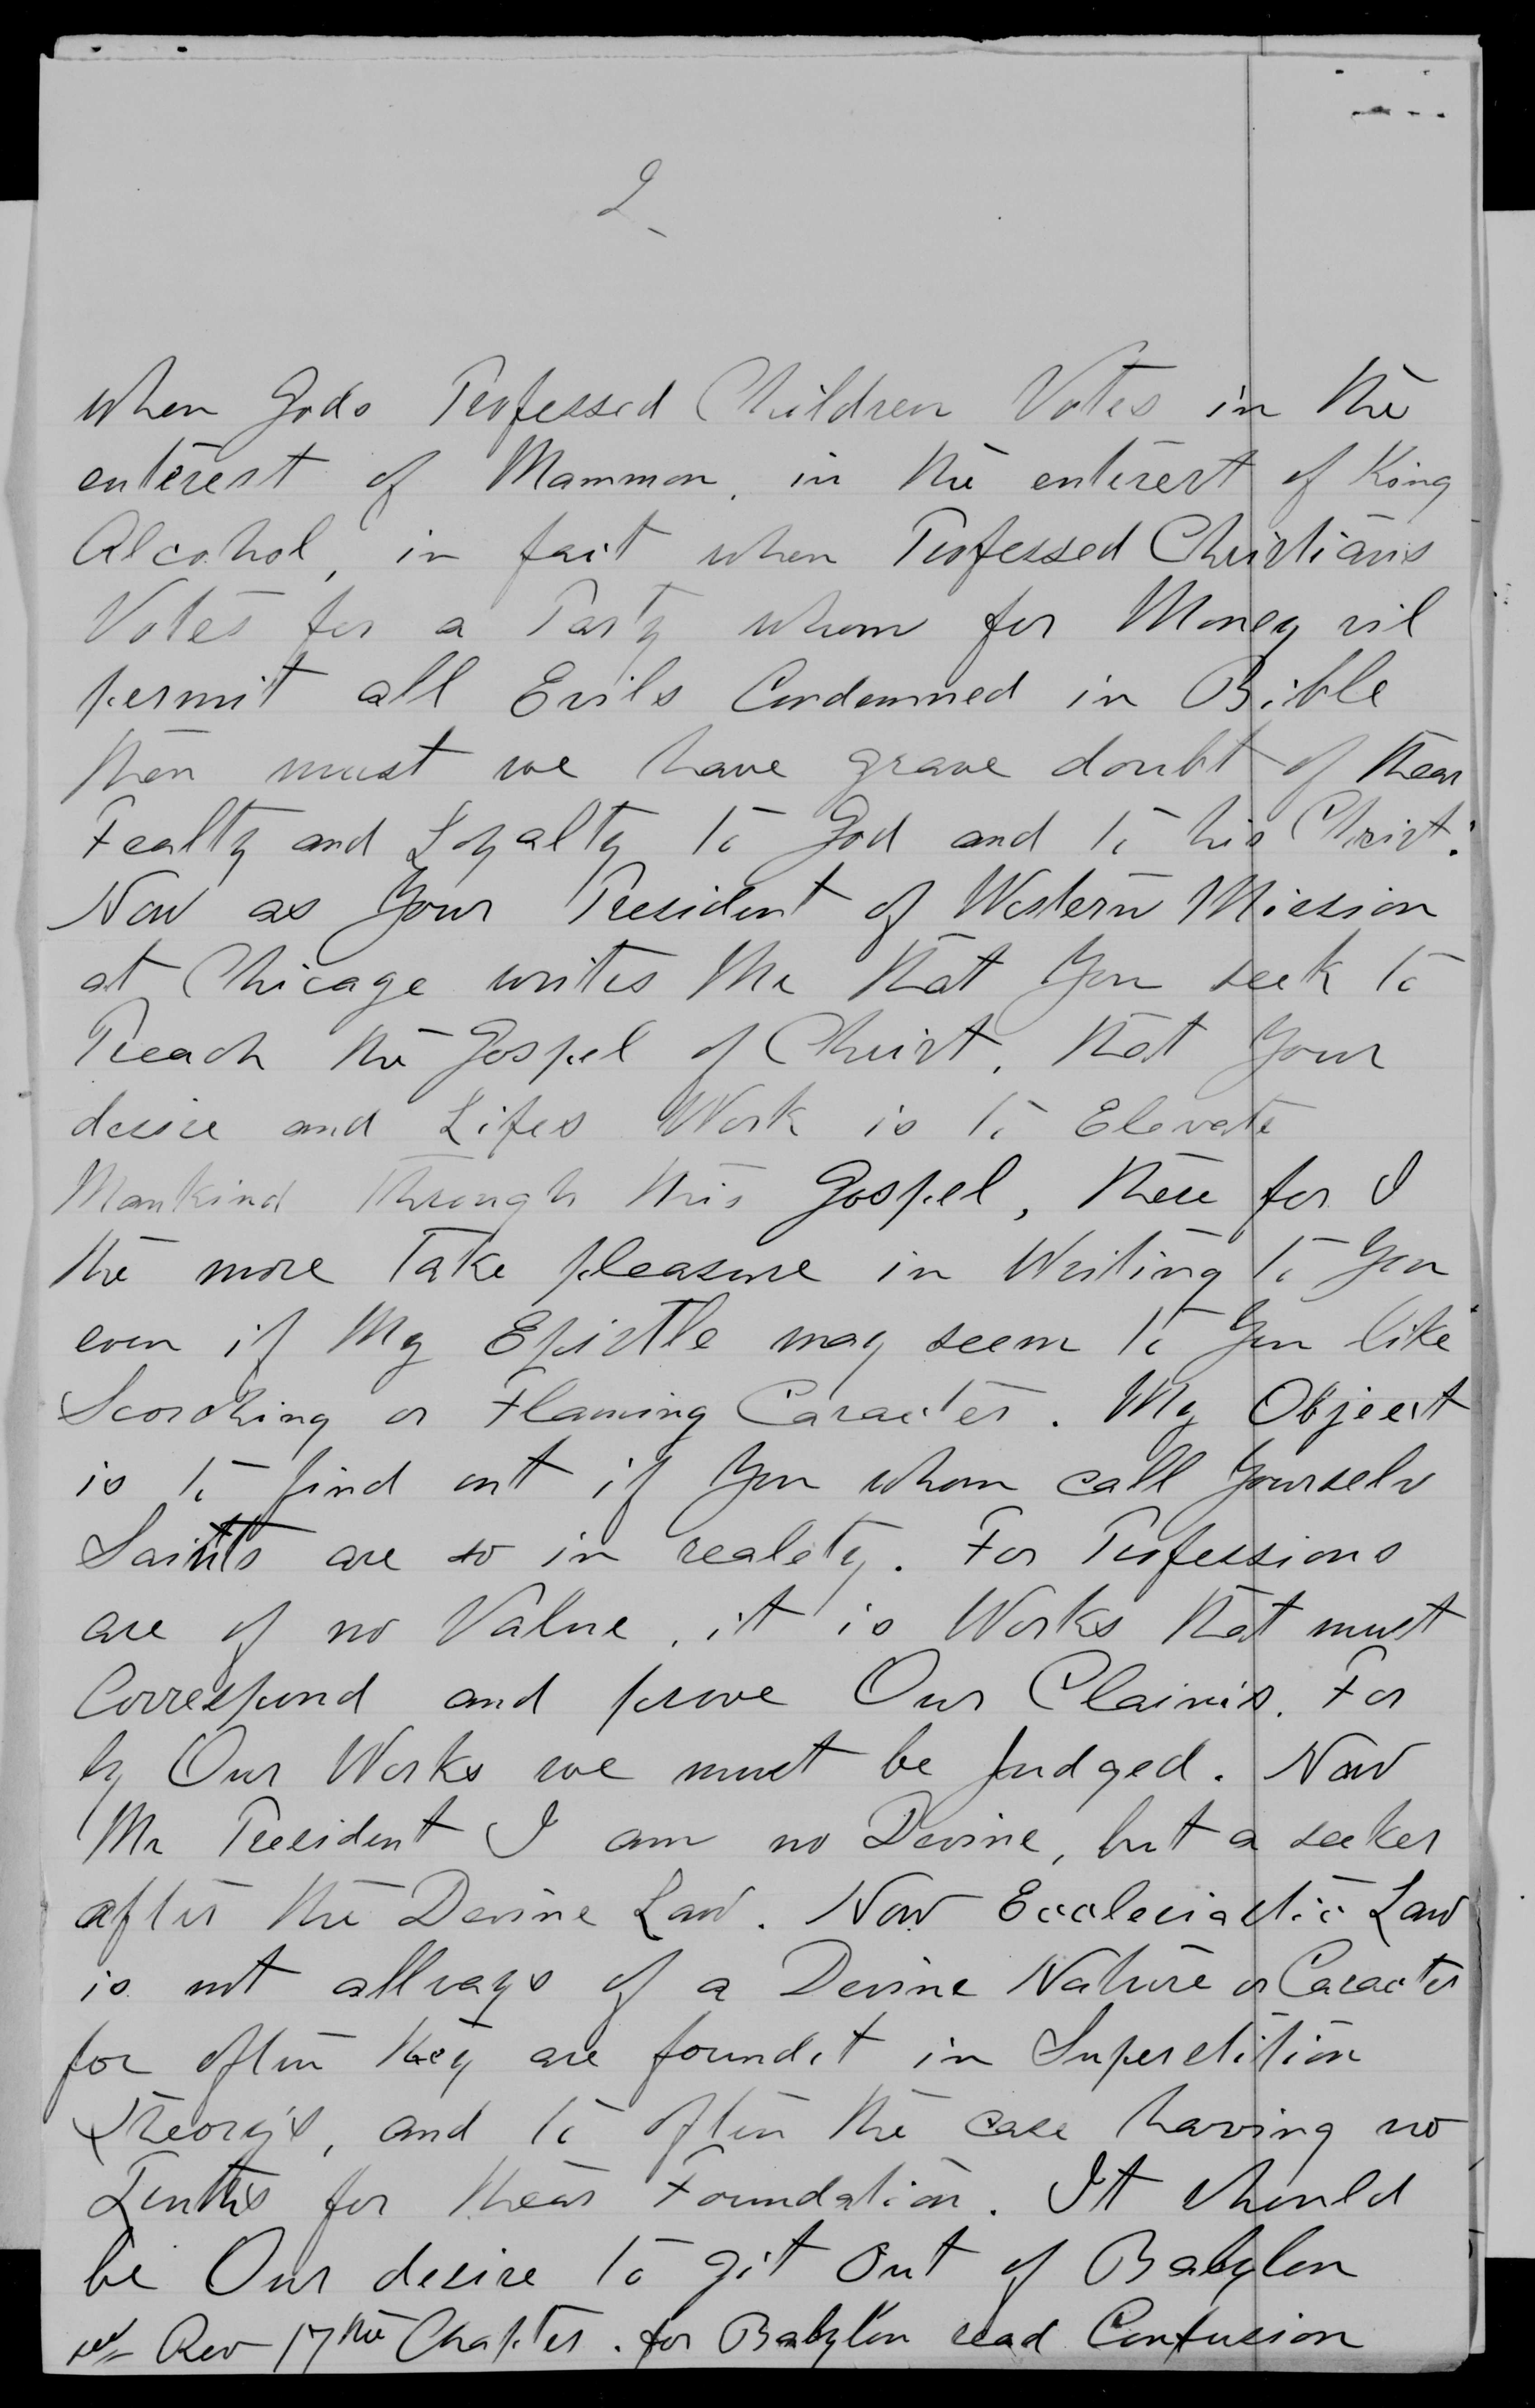 2
when Gods Professed Children Votes in the
enterest of Mammon, in the enterest of King
Alcohol, in fact when Professed Christians
Votes for a Party whom for Money vil
permit all Evils Condemned in Bible
then must we have grave doubt of thear
Fealty and Loyalty to God and to his Christ.
Now as Your President of Western Mission
at Chicage writes Me that You seek to
Preach the Gospel of Christ, that Your
desire and Lifes Work is to Elevate
Mankind through this Gospel, there for I
the more Take pleasure in Writing to You
even if My Epistle may seem to You like
Scorching or Flaming Caracter. My Object
is to find out if You whom call Yourselv
Saints are so in realety. For Professions
are of no Value, it is Works that must
Correspond and prove Our Claims. For
by Our Works we must be Judged. Now
Mr President I am no Devine, but a seeker
after the Devine Law. Now Ecclesiastic Law
is not allways of a Devine Nature or Caracter
for often they are foundet in Superstition
Theory's, and to often the case having no
Truths for thear Foundation. It should
be Our desire to git Out of Babylon
Rev 17the Chapter. for Babylon read Confusion